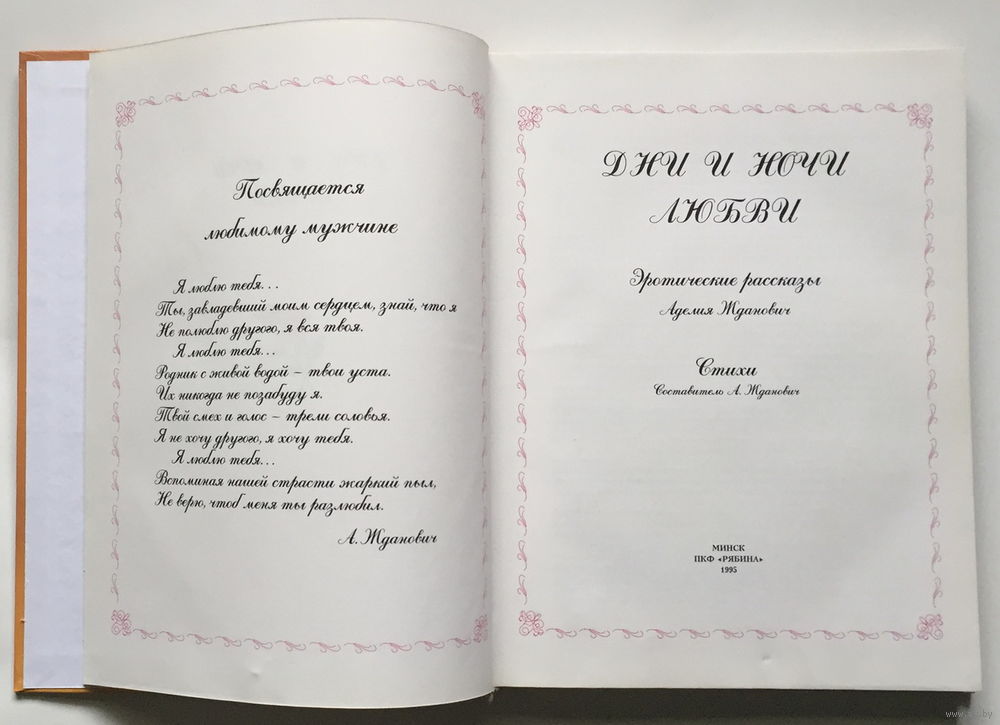 Посвящается
любимому мужчине
Я люблю тебя...
Ты, завладевший моим сердцем, знай, что я
Не полюблю другого, я вся твоя.
Я люблю тебя...
Родник с живой водой – твои уста.
Их никогда не позабуду я.
Твой смех и голос – трели соловья.
Я не хочу другого, я хочу тебя.
Я люблю тебя...
Вспоминая нашей страсти жаркий пыл,
Не верю, чтоб меня ты разлюбил.
А. Жданович
ДНИ И НОЧИ
ЛЮБВИ
Эротические рассказы
Аделия Жданович
Стихи
Составитель А. Жданович
МИНСК
ПКФ «РЯБИНА»
1995